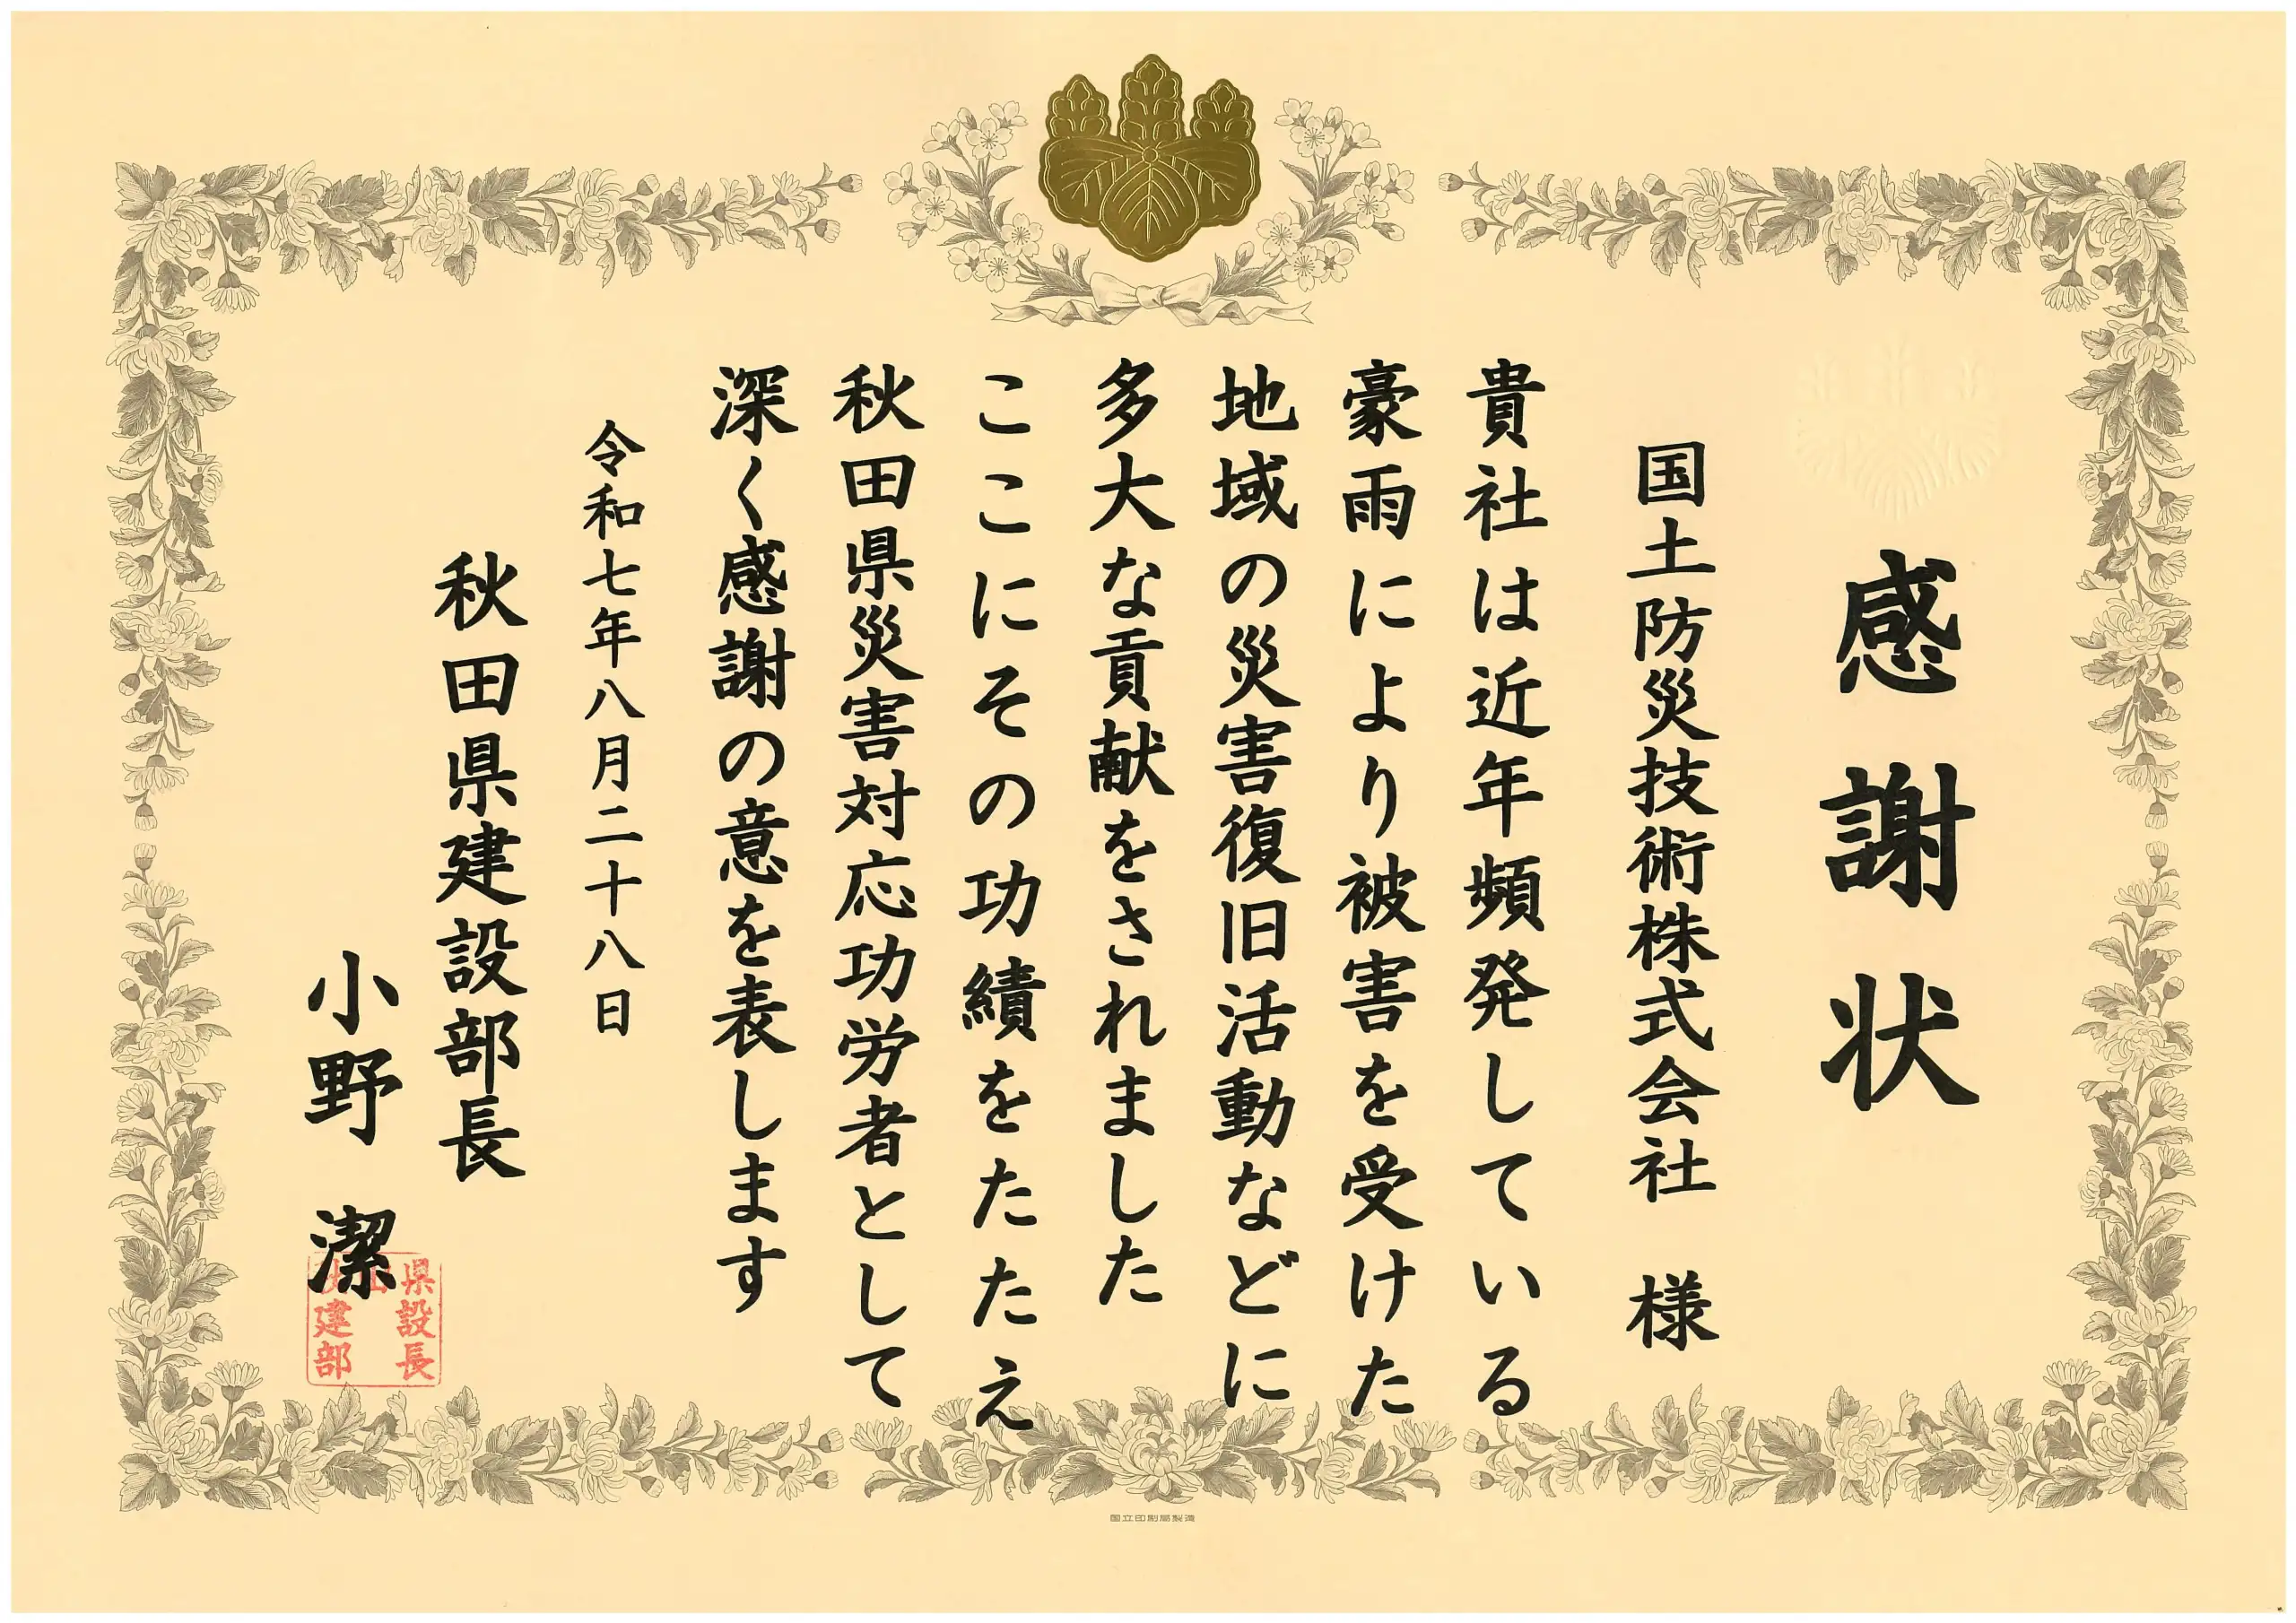 感謝状
国土防災技術株式会社 様
貴社は近年頻発している
豪雨により被害を受けた
地域の災害復旧活動などに
多大な貢献をされました
ここにその功績をたたえ
秋田県災害対応功労者として
深く感謝の意を表します
令和七年八月二十八日
秋田県建設部長
小野 潔
県
設
長
建
部
国立印刷局製造